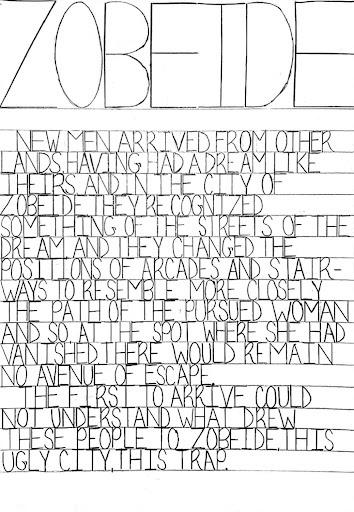 ZOBEIDE
NEW MEN ARRIVED FROM OTHER
LANDS, HAVING HAD A DREAM LIKE
THEIRS AND IN THE CITY OF
ZOBEIDE THEY RECOGNIZED
SOMETHING OF THE STREETS OF THE
DREAM AND THEY CHANGED THE
POSITIONS OF ARCADES AND STAIR-
WAYS TO RESEMBLE MORE CLOSELY
THE PATH OF THE PURSUED WOMAN
AND SO AT THE SPOT WHERE SHE HAD
VANISHED THERE WOULD REMAIN
NO AVENUE OF ESCAPE.
THE FIRST TO ARRIVE COULD
NOT UNDERSTAND WHAT DREW
THESE PEOPLE TO ZOBEIDE, THIS
UGLY CITY, THIS TRAP.